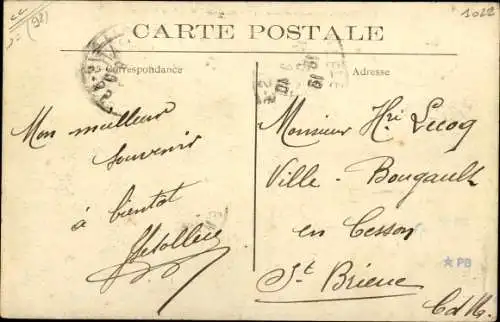 (92)
1022
CARTE POSTALE
Correspondance
Adresse
Mon meilleur
souvenir
à bientot
Monsieur Hri Lecoq
Ville - Bougault
en Cesson
St Brieuc
CdN.
PB